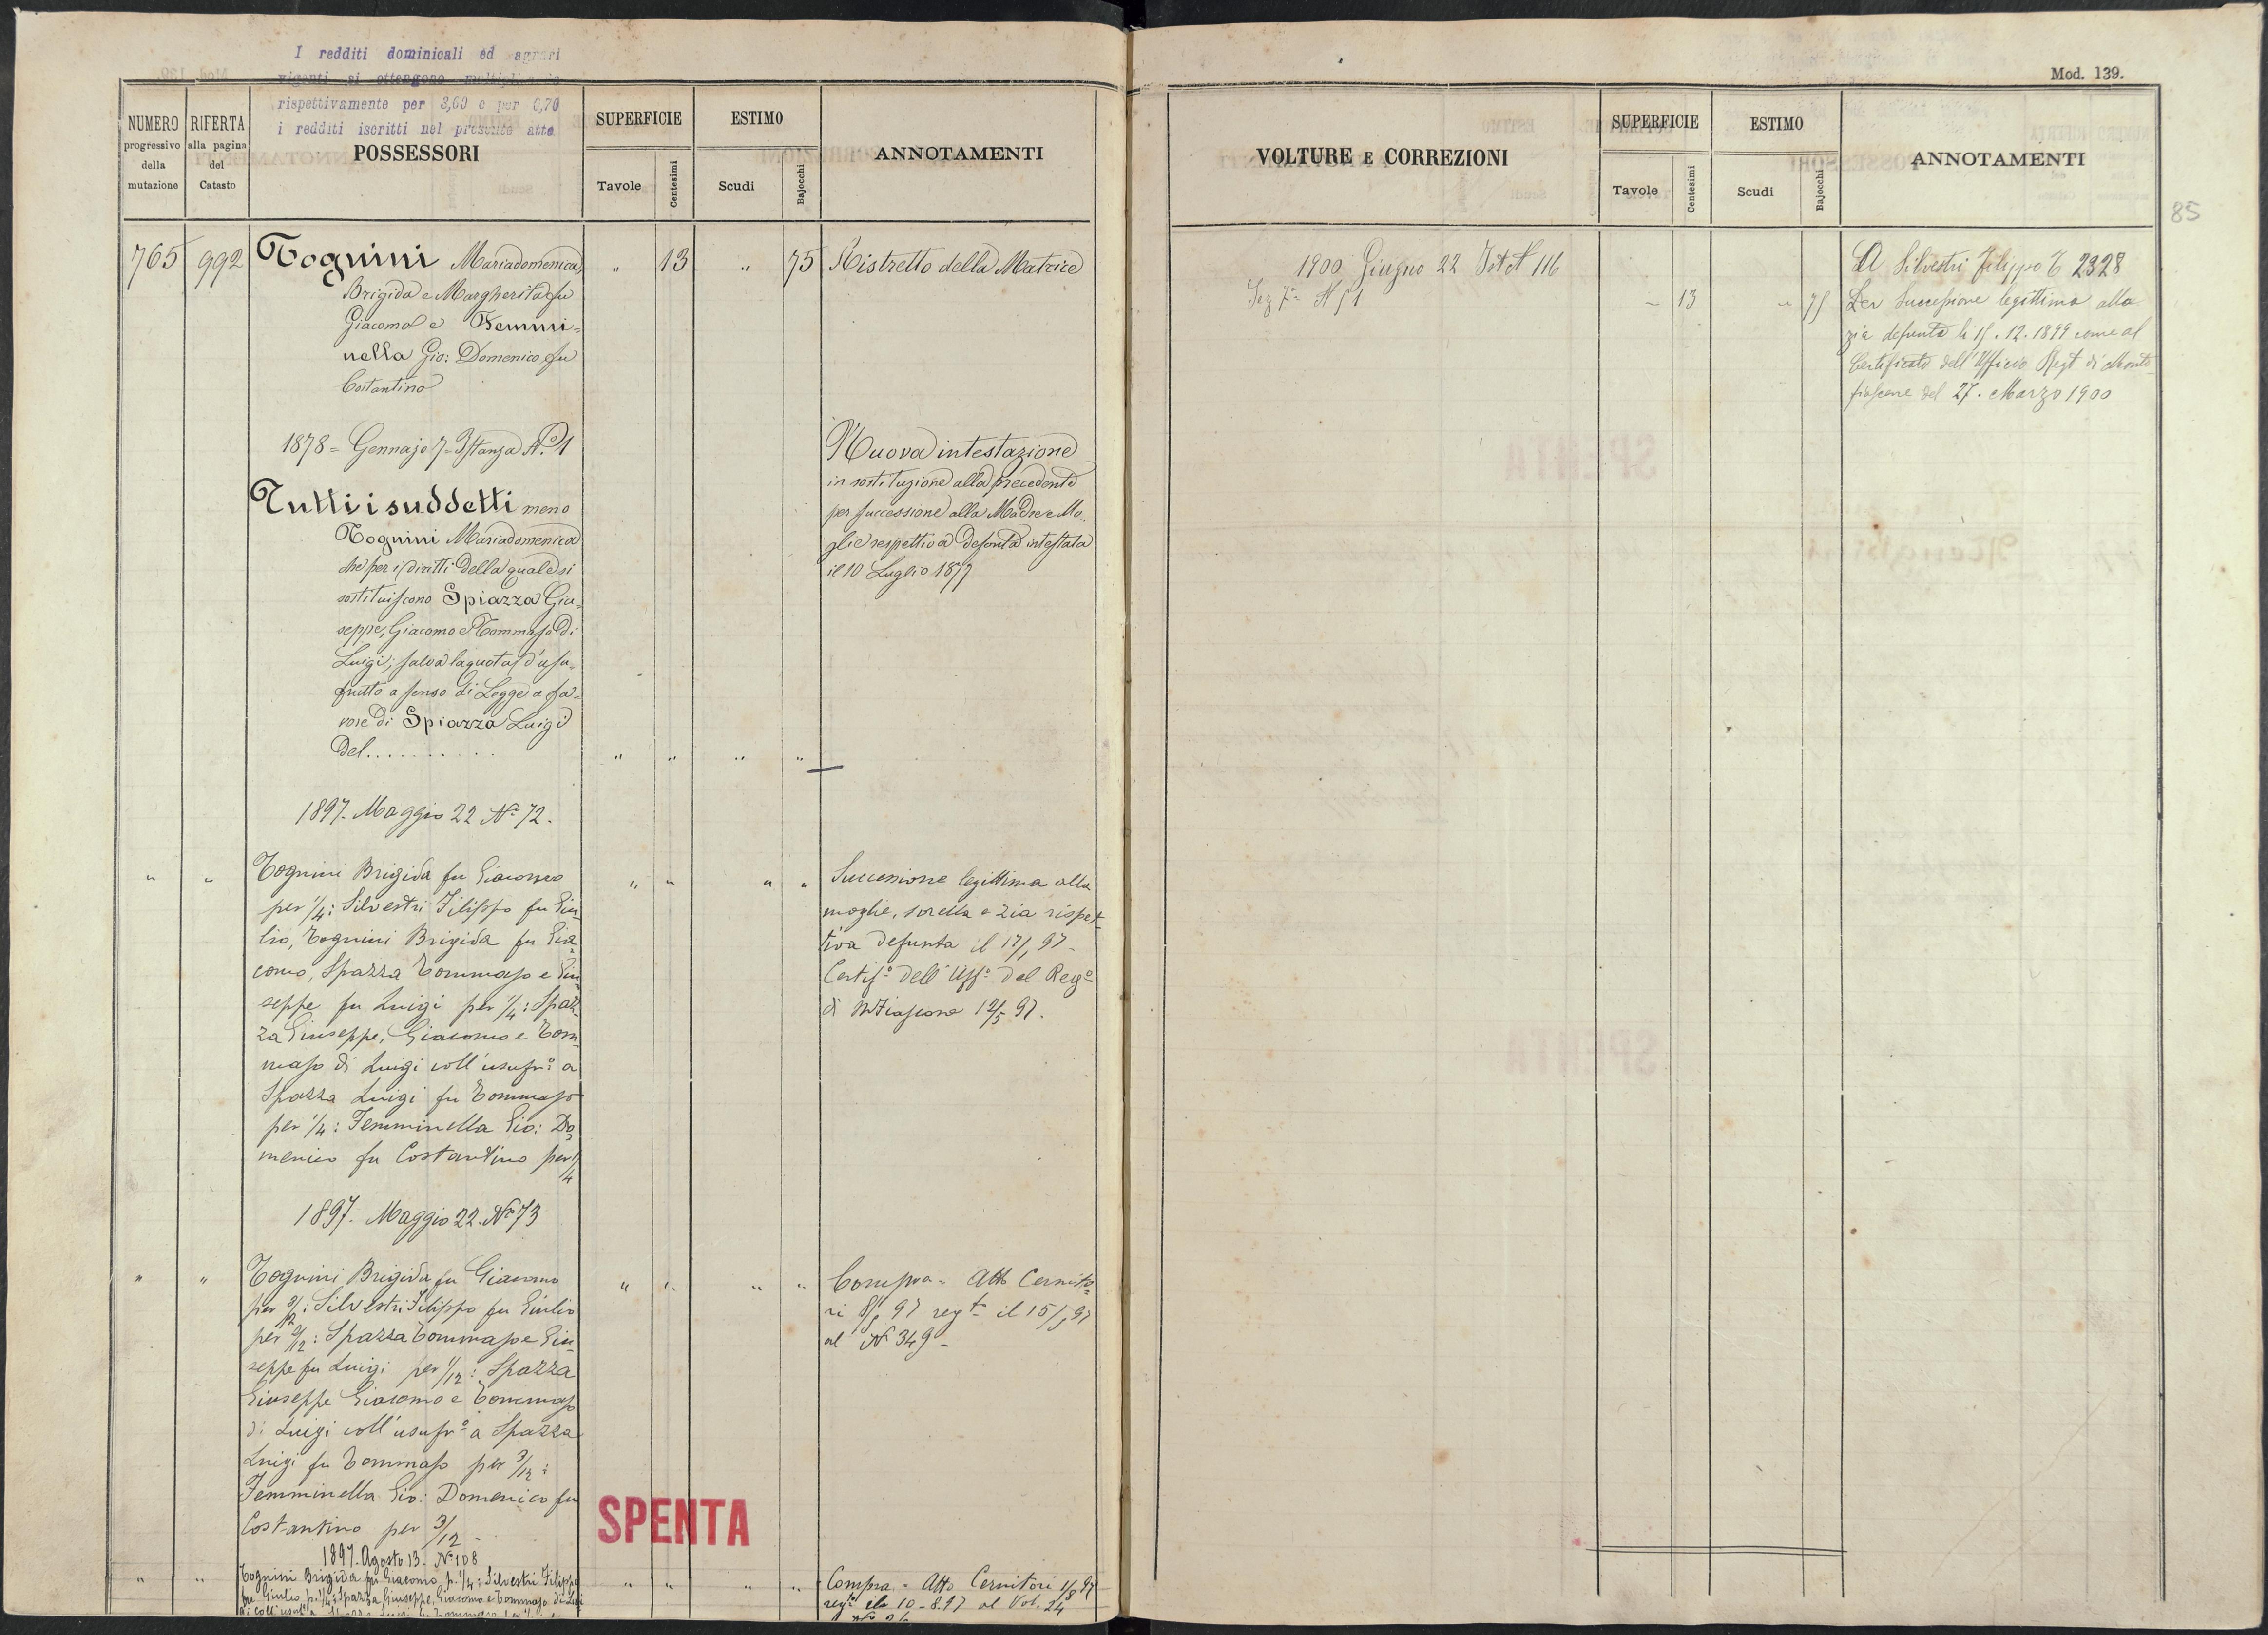 I redditi dominicali ed agrari
vigenti si ottengono
rispettivamente per 3,60 e per 0,70
i redditi iscritti nel presente atto
NUMERO
progressivo
della
mutazione
RIFERTA
alla pagina
del
Catasto
POSSESSORI
SUPERFICIE
Tavole
Centesimi
ESTIMO
Scudi
Bajocchi
ANNOTAMENTI
765 992 Tognini Mariadomenica, " 13 " 75 Ristretto della Matrice
Brigida e Margherita fu
Giacomo e Femmi=
nella Gio: Domenico fu
Costantino
1878 = Gennajo 7 = Istanza N.º 1
Tutti i suddetti meno
Tognini Mariadomenica
che per i diritti della quale si
sostituiscono Spiazza Giu=
seppe, Giacomo e Tommaso di
Luigi; salva la quota d'usu=
frutto a senso di Legge a fa=
vore di Spiazza Luigi
Del.......... " " " "
Nuova intestazione
in sostituzione alla precedente
per successione alla Madre e Mo=
glie respettiva defonta intestata
il 10 Luglio 1877
1897. Maggio 22 Nº 72.
" " Tognini Brigida fu Giacomo " " " "
per 1/4: Silvestri Filippo fu Giu=
lio, Tognini Brigida fu Gia=
como, Spazza Tommaso e Giu=
seppe fu Luigi per 1/4: Spaz=
za Giuseppe, Giacomo e Tom=
maso di Luigi coll'usufrº a
Spazza Luigi fu Tommaso
per 1/4: Femminella Gio: Do=
menico fu Costantino per 1/4
Successione legittima alla
moglie, sorella e zia rispet=
tiva defunta il 17/1 97 -
Certifº dell'Uffº del Regº
di Mfiascone 12/5 97.
1897. Maggio 22. Nº 73
" " Tognini Brigida fu Giacomo " " " "
per 3/12: Silvestri Filippo fu Giulio
per 2/12: Spazza Tommaso e Giu=
seppe fu Luigi per 1/12: Spazza
Giuseppe Giacomo e Tommaso
di Luigi coll'usufrº a Spazza
Luigi fu Tommaso per 3/12:
Femminella Gio: Domenico fu
Costantino per 3/12 -
Compra = Atto Cernito=
ri 97 regto il 15 97
al Nº 349 -
SPENTA
1897. Agosto 13. Nº 108
" " Tognini Brigida fu Giacomo p. 1/4: Silvestri Filippo " " " "
fu Giulio p. 1/4: Spazza Giuseppe, Giacomo e Tommaso di Luigi
Compra = Atto Cernitori 1/8 97
regto il 10-8.97 al Vol. 24
Mod. 139.
VOLTURE E CORREZIONI
SUPERFICIE
Tavole
Centesimi
ESTIMO
Scudi
Bajocchi
ANNOTAMENTI
85
1900 Giugno 22 Ist N 116
Sez 7ª N 51 - 13 " 75
A Silvestri Filippo C 2328
Per Successione legittima alla
zia defunta li 15.12.1899 come al
Certificato dell'Ufficio Regt di Monte
fiascone del 27. Marzo 1900